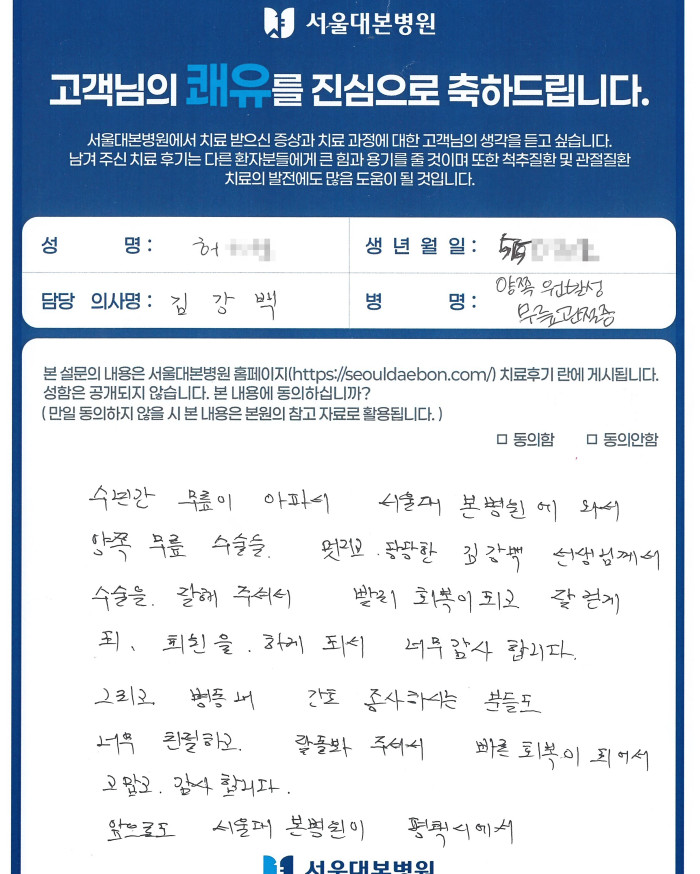 서울대본병원
고객님의 쾌유를 진심으로 축하드립니다.
서울대본병원에서 치료 받으신 증상과 치료 과정에 대한 고객님의 생각을 듣고 싶습니다.
남겨 주신 치료 후기는 다른 환자분들에게 큰 힘과 용기를 줄 것이며 또한 척추질환 및 관절질환
치료의 발전에도 많음 도움이 될 것입니다.
성 명 : 허
생 년 월 일 :
담당 의사명 : 김 강 백
병 명 : 양쪽 원발성
무릎관절증
본 설문의 내용은 서울대본병원 홈페이지(https://seouldaebon.com/) 치료후기 란에 게시됩니다.
성함은 공개되지 않습니다. 본 내용에 동의하십니까?
( 만일 동의하지 않을 시 본 내용은 본원의 참고 자료로 활용됩니다. )
□ 동의함 □ 동의안함
수년간 무릎이 아파서 서울대 본병원에 와서
양쪽 무릎 수술을. 멋지고. 김강백 선생님께서
수술을. 잘해 주셔서 빨리 회복이되고 잘 걷게
되, 퇴원을. 하게 되서 너무감사 합니다.
그리고 병동내 간호 종사하시는 분들도
너무 친절하고. 잘돌봐 주셔서 빠른 회복이 되어서
고맙고. 감사합니다.
앞으로도 서울대 본병원이 평택시에서
서울대본병원